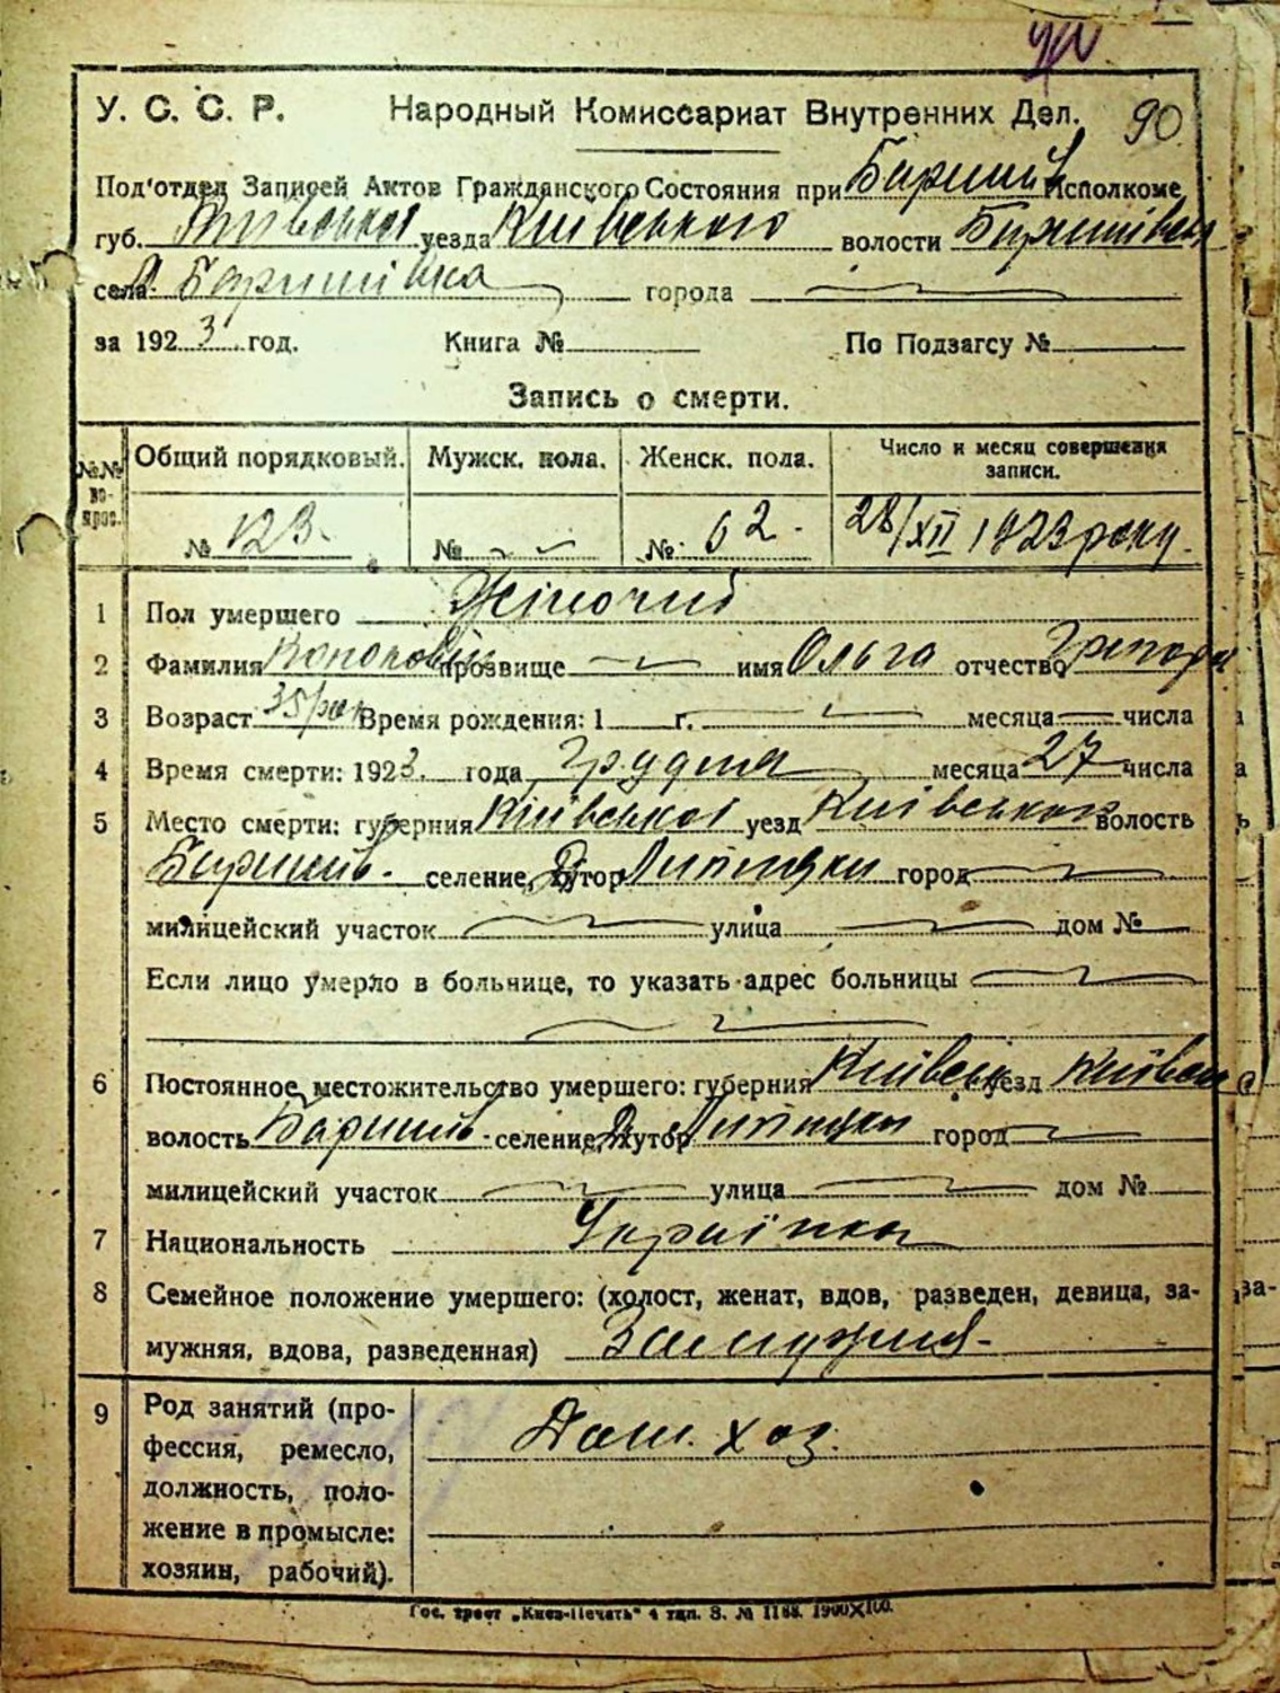 90
У. С. С. Р. Народный Комиссариат Внутренних Дел.
Под'отдел Записей Актов Гражданского Состояния при Баришів Исполкоме
губ. Київської уезда Київського волости Баришівськ
села Баришівка города
за 1923 год. Книга № По Подзагсу №
Запись о смерти.
№№ вопрос. Общий порядковый. Мужск. пола. Женск. пола. Число и месяц совершения записи.
№ 123. № № 62. 28/XII 1923 року.
1 Пол умершего Жіночий
2 Фамилия прозвище имя Ольга отчество Григорів
3 Возраст 35/рок Время рождения: 1 г. месяца числа
4 Время смерти: 1923. года Грудня месяца 27 числа
5 Место смерти: губерния Київської уезд Київського волость
Баришів. селение, хутор город
милицейский участок улица дом №
Если лицо умерло в больнице, то указать адрес больницы
6 Постоянное местожительство умершего: губерния Київськ уезд Київськ
волость Баришів. селение, хутор город
милицейский участок улица дом №
7 Национальность Українка
8 Семейное положение умершего: (холост, женат, вдов, разведен, девица, за-
мужняя, вдова, разведенная) Замужня
9 Род занятий (про-
фессия, ремесло,
должность, поло-
жение в промысле:
хозяин, рабочий).
Дом. хоз.
Гос. трест „Киев-Печать" 4 тип. З. № 1188. 1900X100.